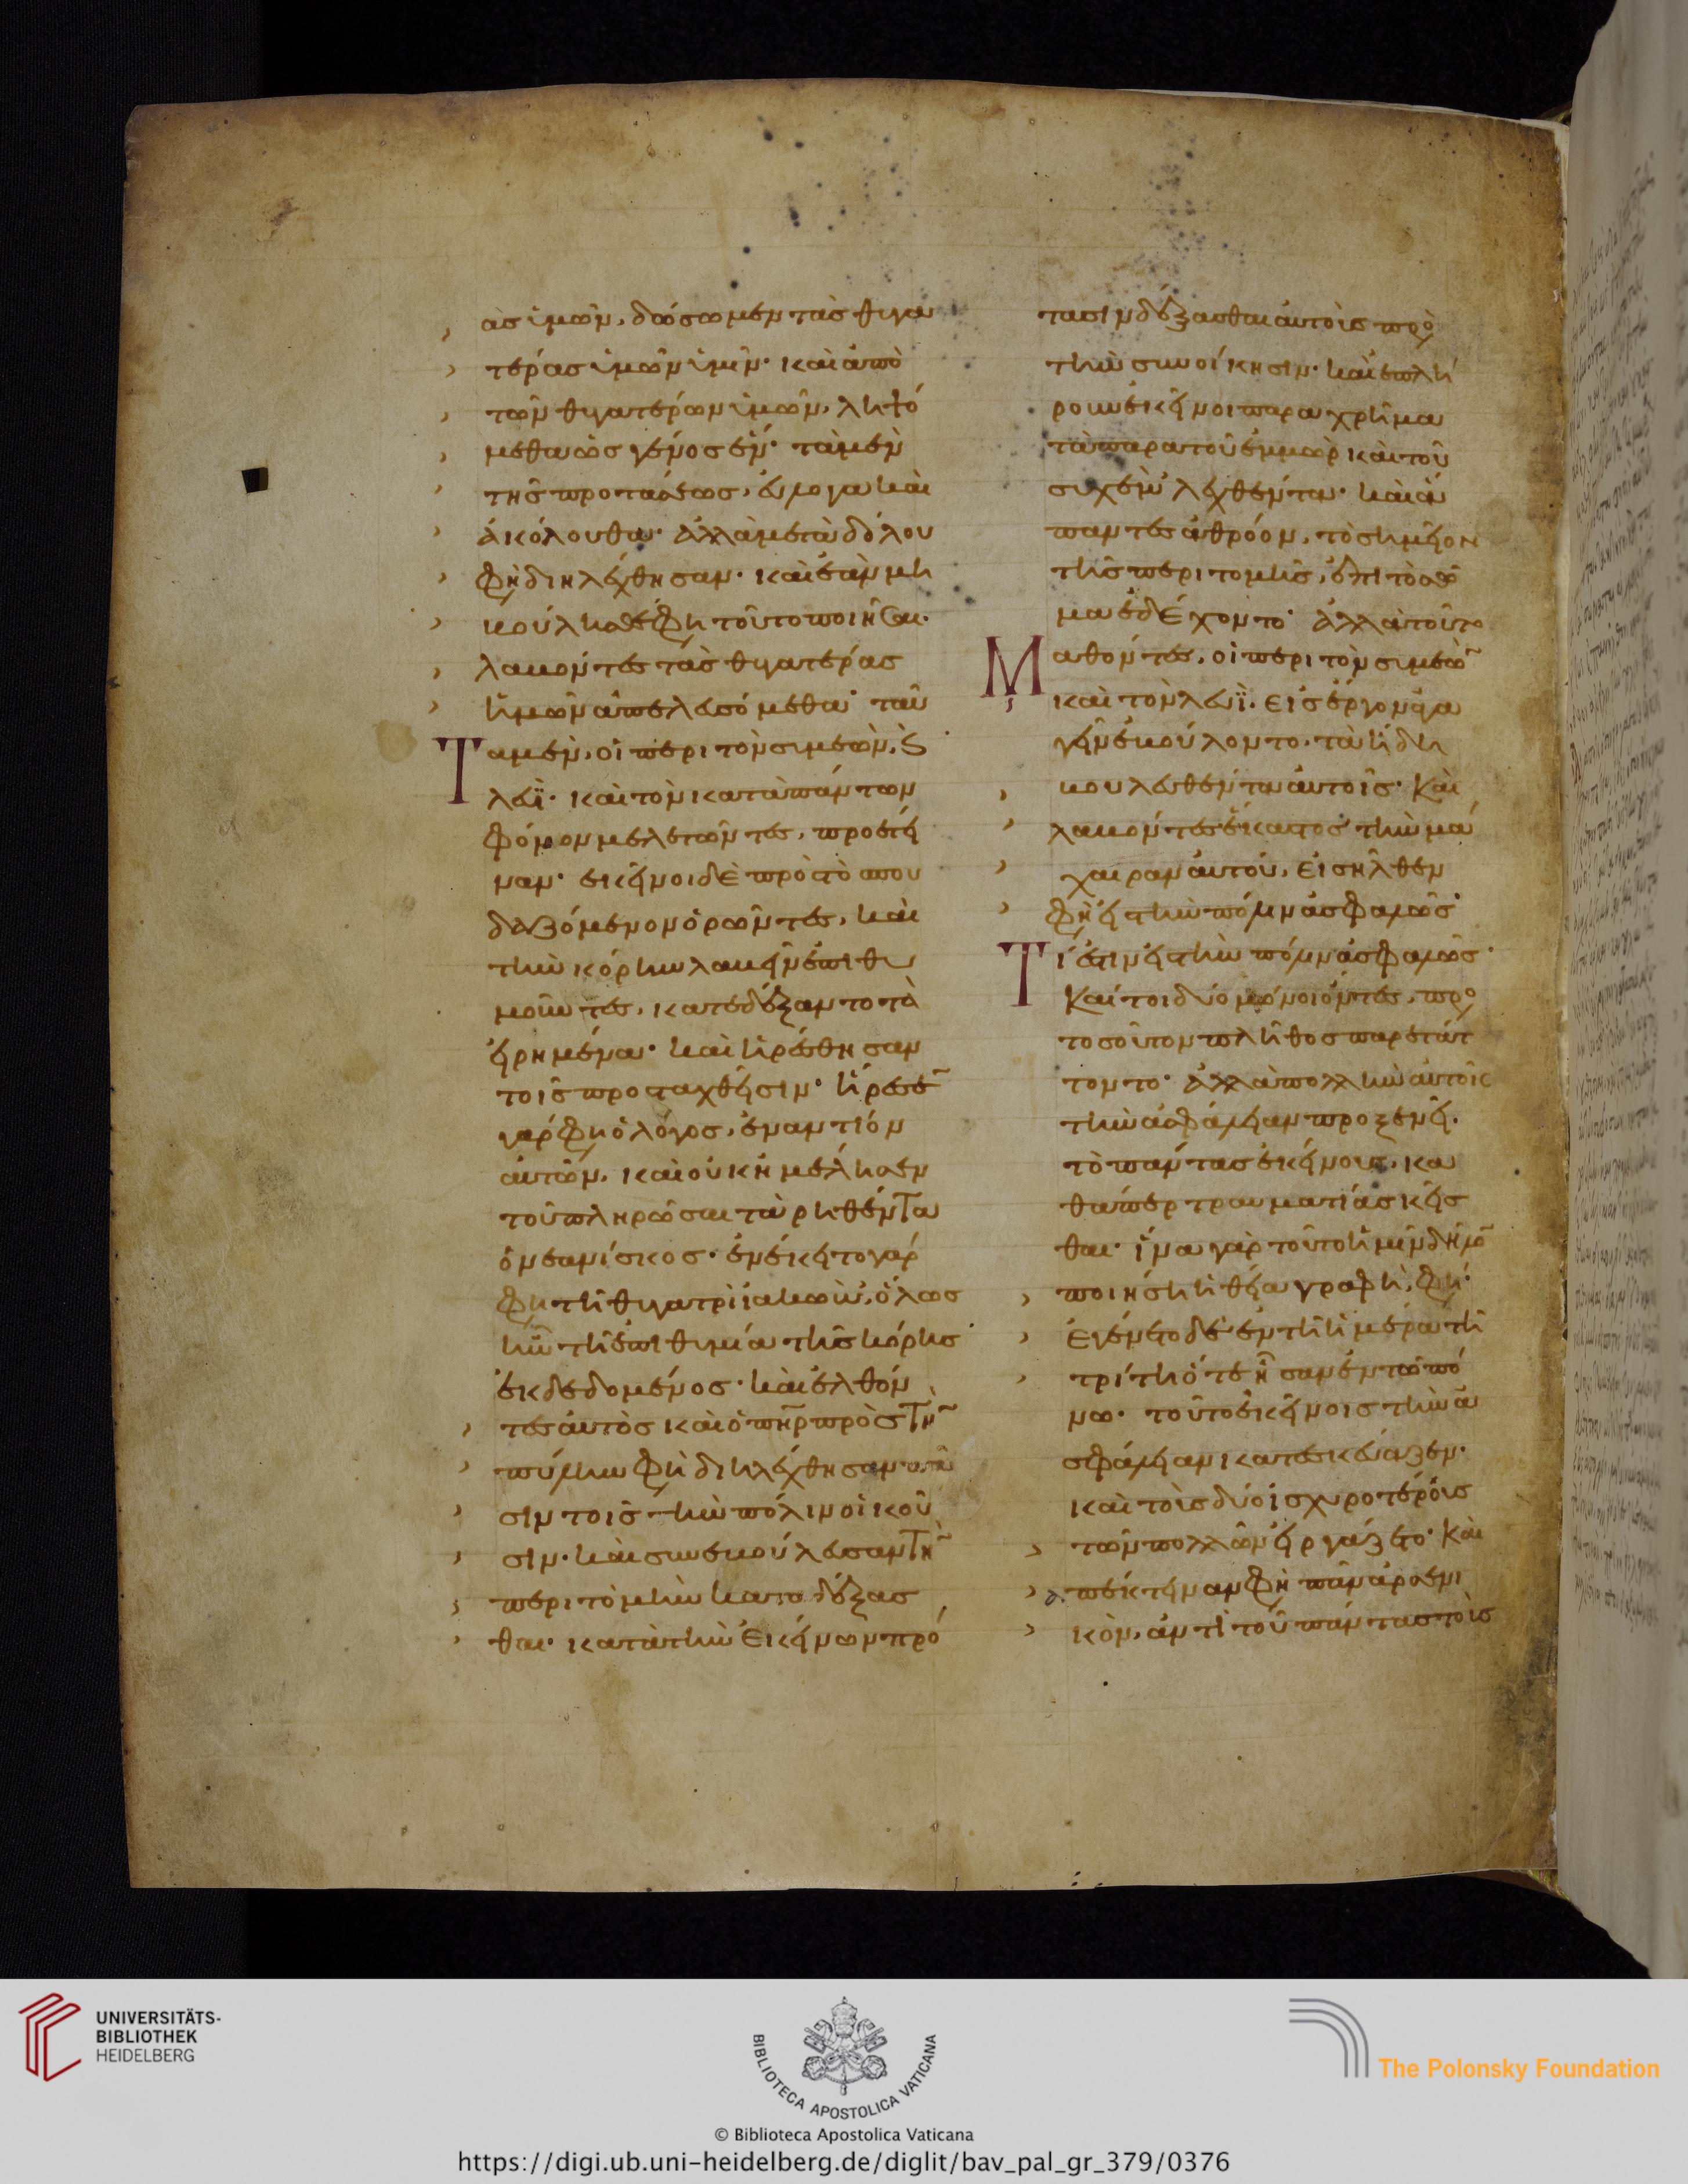 ὰς ὑμῶν, δώσωμεν τὰς θυγα
τέρας ὑμῶν ὑμῖν· καὶ ἀπὸ
τῶν θυγατέρων ὑμῶν, ληψό
μεθα ὡς γένος ἕν· τὰ μὲν
τῆς προτάσεως, εὔλογα καὶ
ἀκόλουθα· ἀλλὰ μετὰ δόλου
φη διηλέχθησαν· καὶ ἐὰν μὴ
βούλησθε φη τοῦτο ποιῆσαι·
λαβόντες τὰς θυγατέρας
ἡμῶν ἀπελευσόμεθα· ταῦ
Τα μὲν, οἱ περι τὸν συμεὼν, ϗ
λευῒ· καὶ τὸν κατὰ πάντων
φόνον μελετῶντες, προετεί
ναν· ἐκεῖνοι δὲ πρὸς τὸ σπου
δαζόμενον ὁρῶντες, καὶ
τὴν κόρην λαβεῖν ἐπιθυ
μοῦντες, κατεδέξαντο τὰ
εἰρημένα· καὶ ἠρέσθησαν
τοῖς προταχθεῖσιν· ἤρεσε
γάρ φη ὁ λόγος, ἐναντίον
αὐτῶν, καὶ οὐκ ἠμέλησεν
τοῦ πληρῶσαι τὰ ῥηθέντα
ὁ νεανίσκος· ἐνέκειτο γάρ
φη τῆ θυγατρὶ ἰακὼβ, ὅλως
ἦν τῆ ἐπιθυμία τῆς κόρης
ἐκδεδομένος· καὶ ἐλθόν
τες αὐτὸς καὶ ὁ πη̅ρ πρὸς τὴν
πύλην φη διηλέχθησαν
σιν τοῖς τὴν πόλιν οἰκοῦ
σιν· καὶ συνεβούλευσαν τὴν
περιτομὴν καταδέξασ
θαι· κατὰ τὴν ἐκείνων πρό
τασιν δέξασθαι αὐτοῖς πρὸ
τὴν συνοίκησιν· καὶ ἐπλή
ρουν ἐκεῖνοι παραχρῆμα
τὰ παρα τοῦ ἐμμὼρ καὶ τοῦ
συχὲμ λεχθέντα· καὶ ἅ
παντες ἀθρόον, τὸ σημεῖον
τῆς περιτομῆς, ἐπι τὸ σῶ
μα ἐδέχοντο· ἀλλὰ τοῦτο
Μαθόντες, οἱ περι τὸν συμεὼ
καὶ τὸν λευῒ· εἰς ἔργον ἀγα
γεῖν ἐβούλοντο, τὰ ἤδη
βουλευθέντα αὐτοῖς· Καὶ
λαβόντες ἕκαστος τὴν μά
χαιραν αὐτοῦ, εἰσῆλθεν
φη εἰς τὴν πόλιν ἀσφαλῶς·
Τί ἐστιν εἰς τὴν πόλιν ἀσφαλῶς·
Καίτοι δύο μόνοι ὄντες, προ
τοσοῦτον πλῆθος παρετάτ
τοντο· ἀλλὰ πολλὴν αὐτοῖς
τὴν ἀσφάλειαν προξενεῖ·
τὸ πάντας ἐκείνους, κα
θάπερ τραυματίας κεῖσ
θαι· ἵνα γὰρ τοῦτο ἡμῖν δῆλο
ποιήση ἡ θεία γραφὴ, φη·
Ἐγένετο δὲ ἐν τῆ ἡμέρα τῆ
τρίτη ὅτε ἦσαν ἐν τῷ πό
νω· τοῦτο ἐκείνοις τὴν ἀ
σφάλειαν κατεσκεύαζεν·
καὶ τοὺς δύο ἰσχυροτέρους
τῶν πολλῶν εἰργάζετο· Καὶ
ἀπέκτειναν φη πᾶν ἀρσενι
κὸν, ἀντὶ τοῦ πάντας τοὺς
UNIVERSITÄTS-
BIBLIOTHEK
HEIDELBERG
BIBLIOTECA APOSTOLICA VATICANA
The Polonsky Foundation
© Biblioteca Apostolica Vaticana
https://digi.ub.uni-heidelberg.de/diglit/bav_pal_gr_379/0376